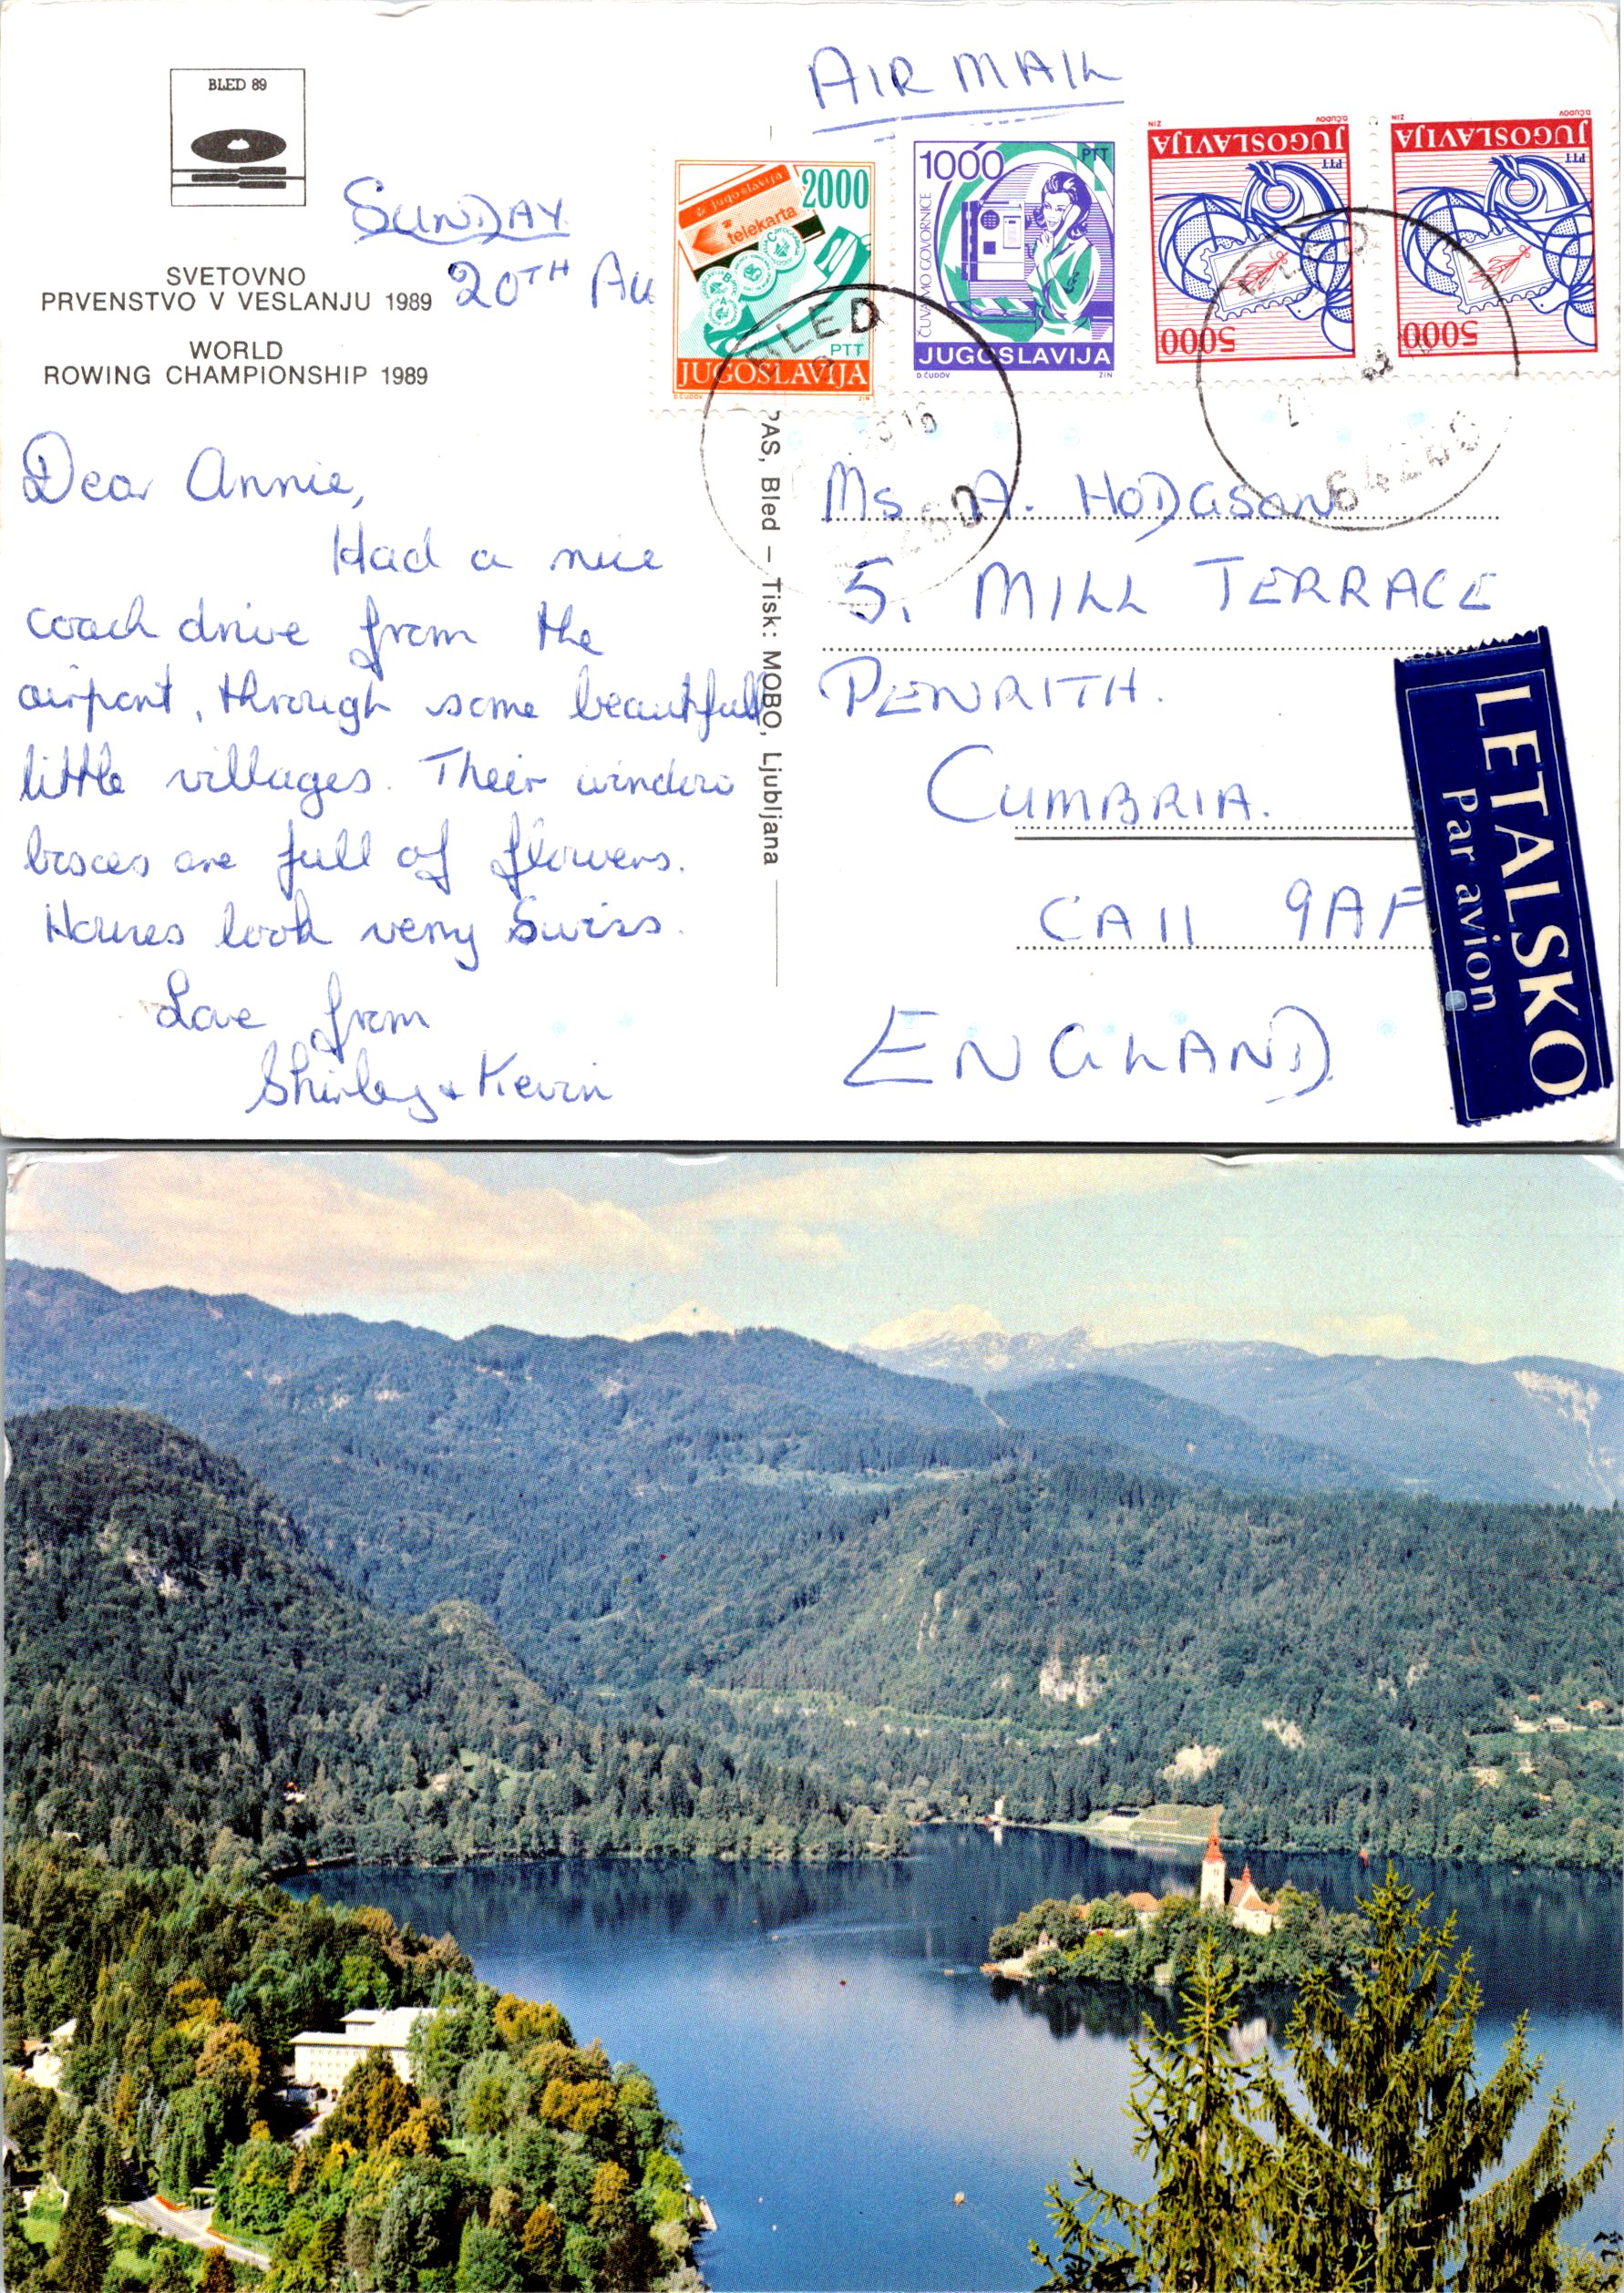 BLED 89
SVETOVNO
PRVENSTVO V VESLANJU 1989
WORLD
ROWING CHAMPIONSHIP 1989
SUNDAY
20TH AU
Dear Annie,
Had a nice
coach drive from the
airport, through some beautifull
little villages. Their window
boxes are full of flowers.
Houses look very Swiss.
Love from
Shirley & Kevin
PAS, Bled – Tisk: MOBO, Ljubljana
AIR MAIL
jugoslavija
2000
telekarta
PTT
JUGOSLAVIJA
D.ČUDOV ZIN
1000
PTT
ČUVAJMO GOVORNICE
JUGOSLAVIJA
D.ČUDOV ZIN
JUGOSLAVIJA
PTT
5000
D.ČUDOV ZIN
JUGOSLAVIJA
PTT
5000
D.ČUDOV ZIN
BLED
BLED
64260
Ms A. HODGSON
5, MILL TERRACE
PENRITH.
CUMBRIA.
CA11 9AF
ENGLAND
LETALSKO
Par avion